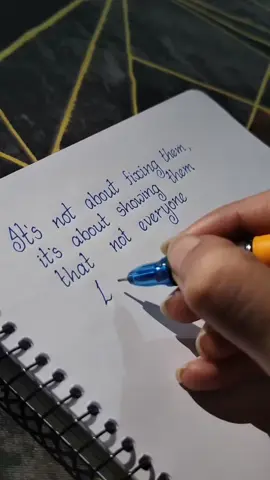 It's not about fixing them,
it's about showing them
that not everyone
L